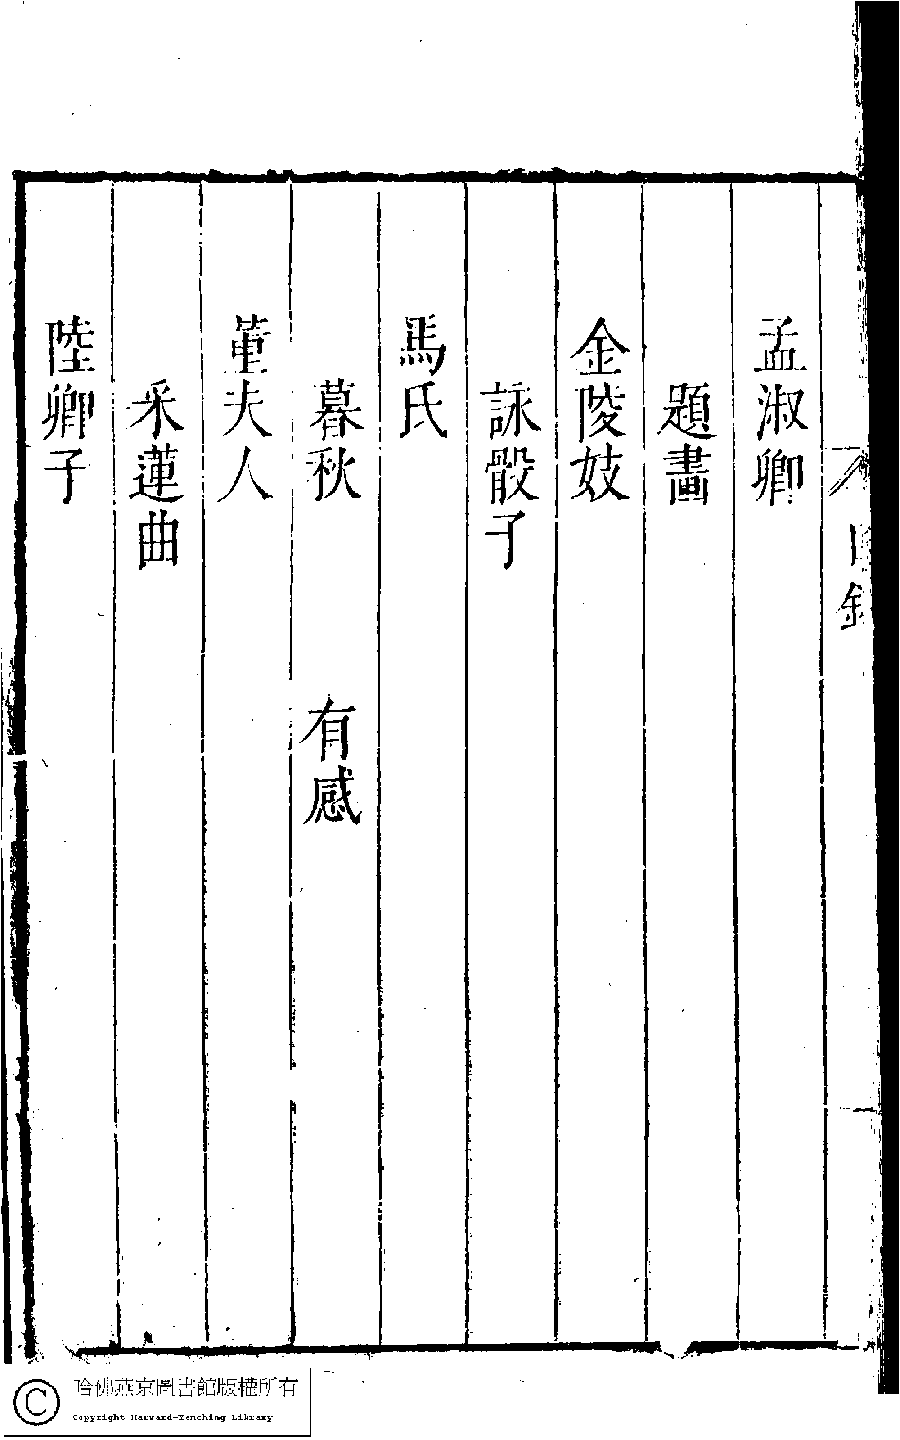 目錄
孟淑卿
題畫
金陵妓
詠骰子
馬氏
暮秋 有感
董夫人
采蓮曲
陸卿子
哈佛燕京圖書館版權所有
Copyright Harvard-Yenching Library